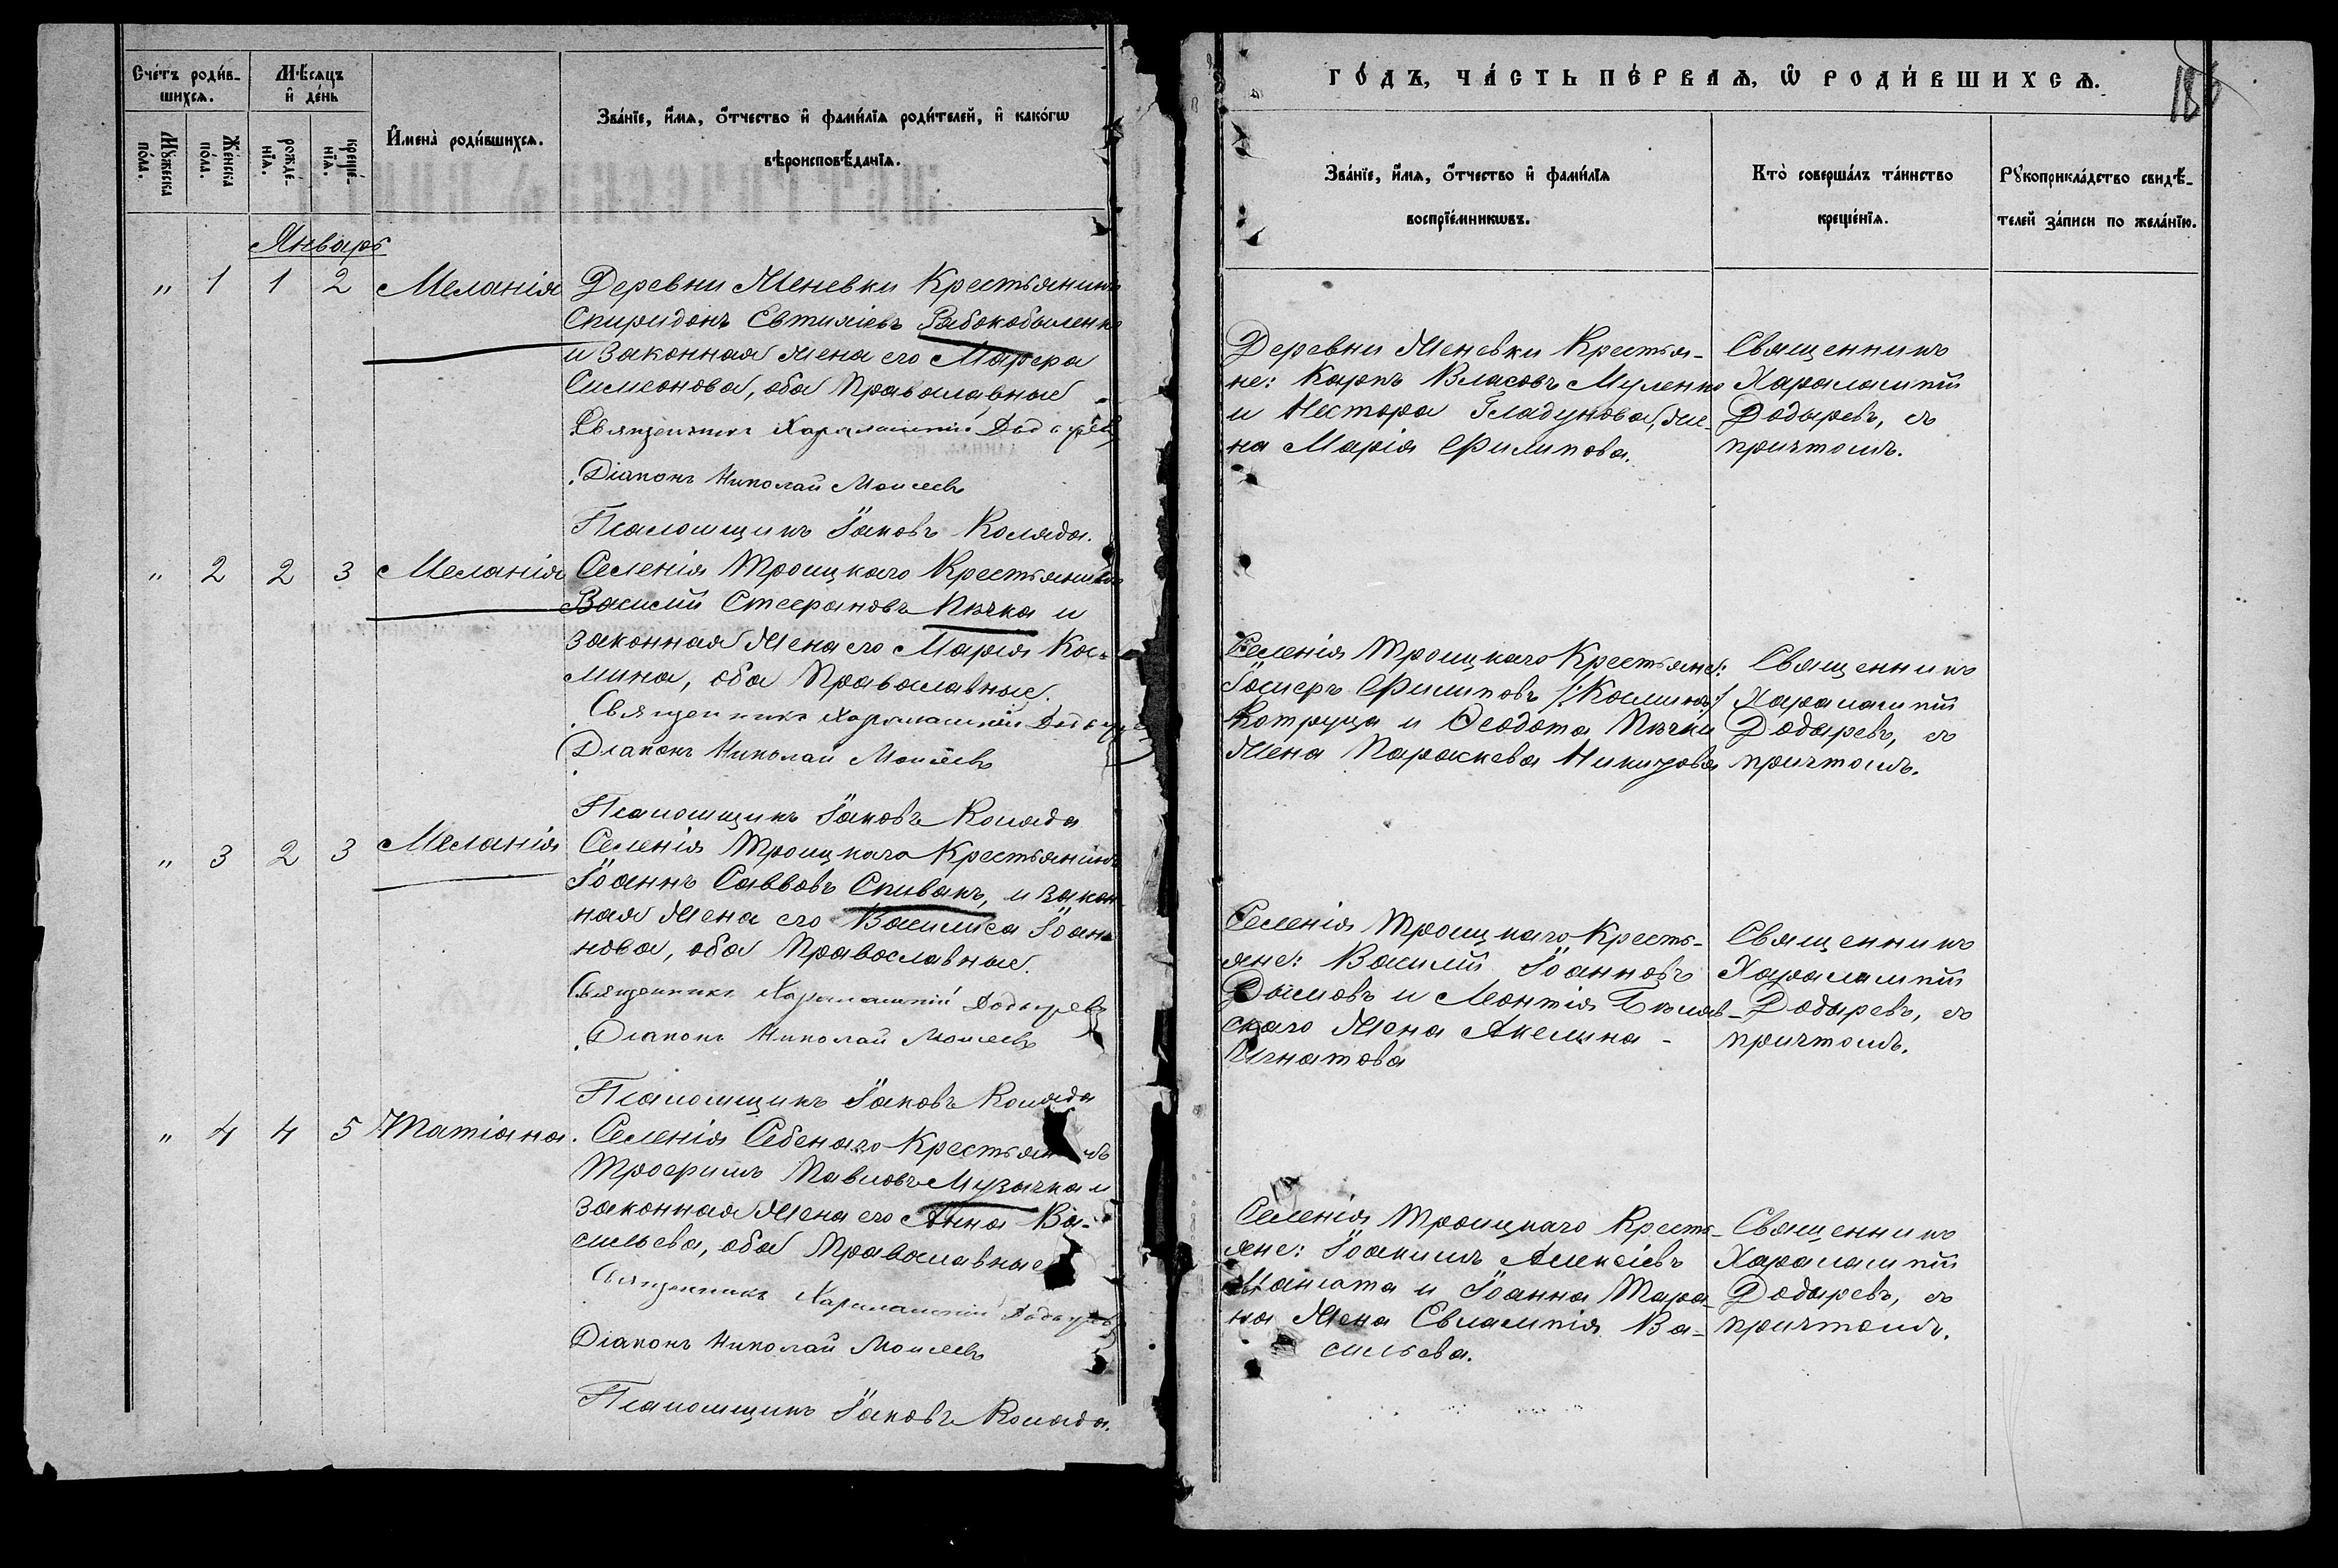 Счетъ родив-
шихся.
Мѣсяцъ
и день
Мужеска
пола.
Женска
пола.
рожде-
нія.
креще-
нія.
Имена родившихся.
Званіе, имя, отчество и фамилія родителей, и какогѡ
вѣроисповѣданія.
Январь
" 1 1 2 Меланія
Деревни Женевки Крестьянинъ
Спиридонъ Евтихіевъ Рабокобыленко
и законная жена его Марфа
Симеонова, оба Православные
Священникъ Харалампій Додыревъ
Діаконъ Николай Моисеевъ
Псаломщикъ Іаковъ Коляда.
" 2 2 3 Меланія
Селенія Троицкаго Крестьянинъ
Василій Стефановъ Пѣчка и
законная жена его Марія Кос-
мина, оба Православные.
Священникъ Харалампій Додыревъ
Діаконъ Николай Моисеевъ
Псаломщикъ Іаковъ Коляда
" 3 2 3 Меланія
Селенія Троицкаго Крестьянинъ
Іоаннъ Саввовъ Спивакъ, и закон-
ная жена его Василиса Іоан-
нова, оба Православные.
Священникъ Харалампій Додыревъ
Діаконъ Николай Моисеевъ
Псаломщикъ Іаковъ Коляда
" 4 4 5 Татіана.
Селенія Крестьянинъ
Трофимъ Павловъ Музычка и
законная жена его Анна Ва-
сильева, оба Православные
Священникъ Харалампій Додыревъ
Діаконъ Николай Моисеевъ
Псаломщикъ Іаковъ Коляда.
ГОДЪ, ЧАСТЬ ПЕРВАЯ, Ѡ РОДИВШИХСЯ.
Званіе, имя, отчество и фамилія
воспріемникѡвъ.
Кто совершалъ таинство
крещенія.
Рукоприкладство свидѣ-
телей записи по желанію.
Деревни Женевки Крестья-
не: Карпъ Власовъ Муленко
и Нестора Гладунова, же-
на Марія Филипова.
Священникъ
Харалампій
Додыревъ, съ
причтомъ.
Селенія Троицкаго Крестьяне:
Іосифъ Филиповъ /:Косминъ:/
Котруца и Ѳеодота Пѣчки
жена Параскева Никитова
Священникъ
Харалампій
Додыревъ, съ
причтомъ.
Селенія Троицкаго Кресть-
яне: Василій Іоанновъ
Дымовъ и Леонтія Бѣляв-
скаго жена Акелина
Игнатова
Священникъ
Харалампій
Додыревъ, съ
причтомъ.
Селенія Троицкаго Кресть-
яне: Іоакимъ Алексіевъ
и Іоанна Тара-
на жена Евлампія Ва-
сильева.
Священникъ
Харалампій
Додыревъ, съ
причтомъ.